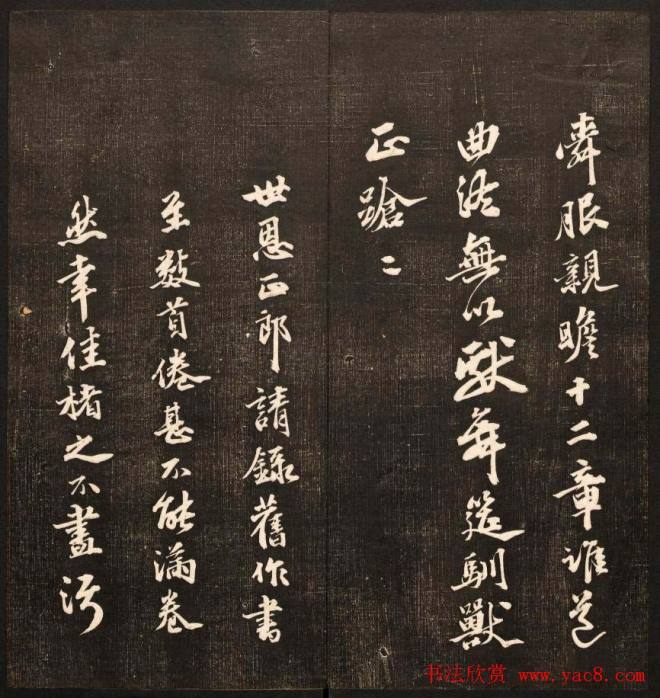 舜服親瞻十二章誰道
曲終無以獻舞筵馴獸
正蹌二
世恩正郎請錄舊作書
至數首倦甚不能滿卷
然幸佳楮之不盡污
书法欣赏 www.yac8.com